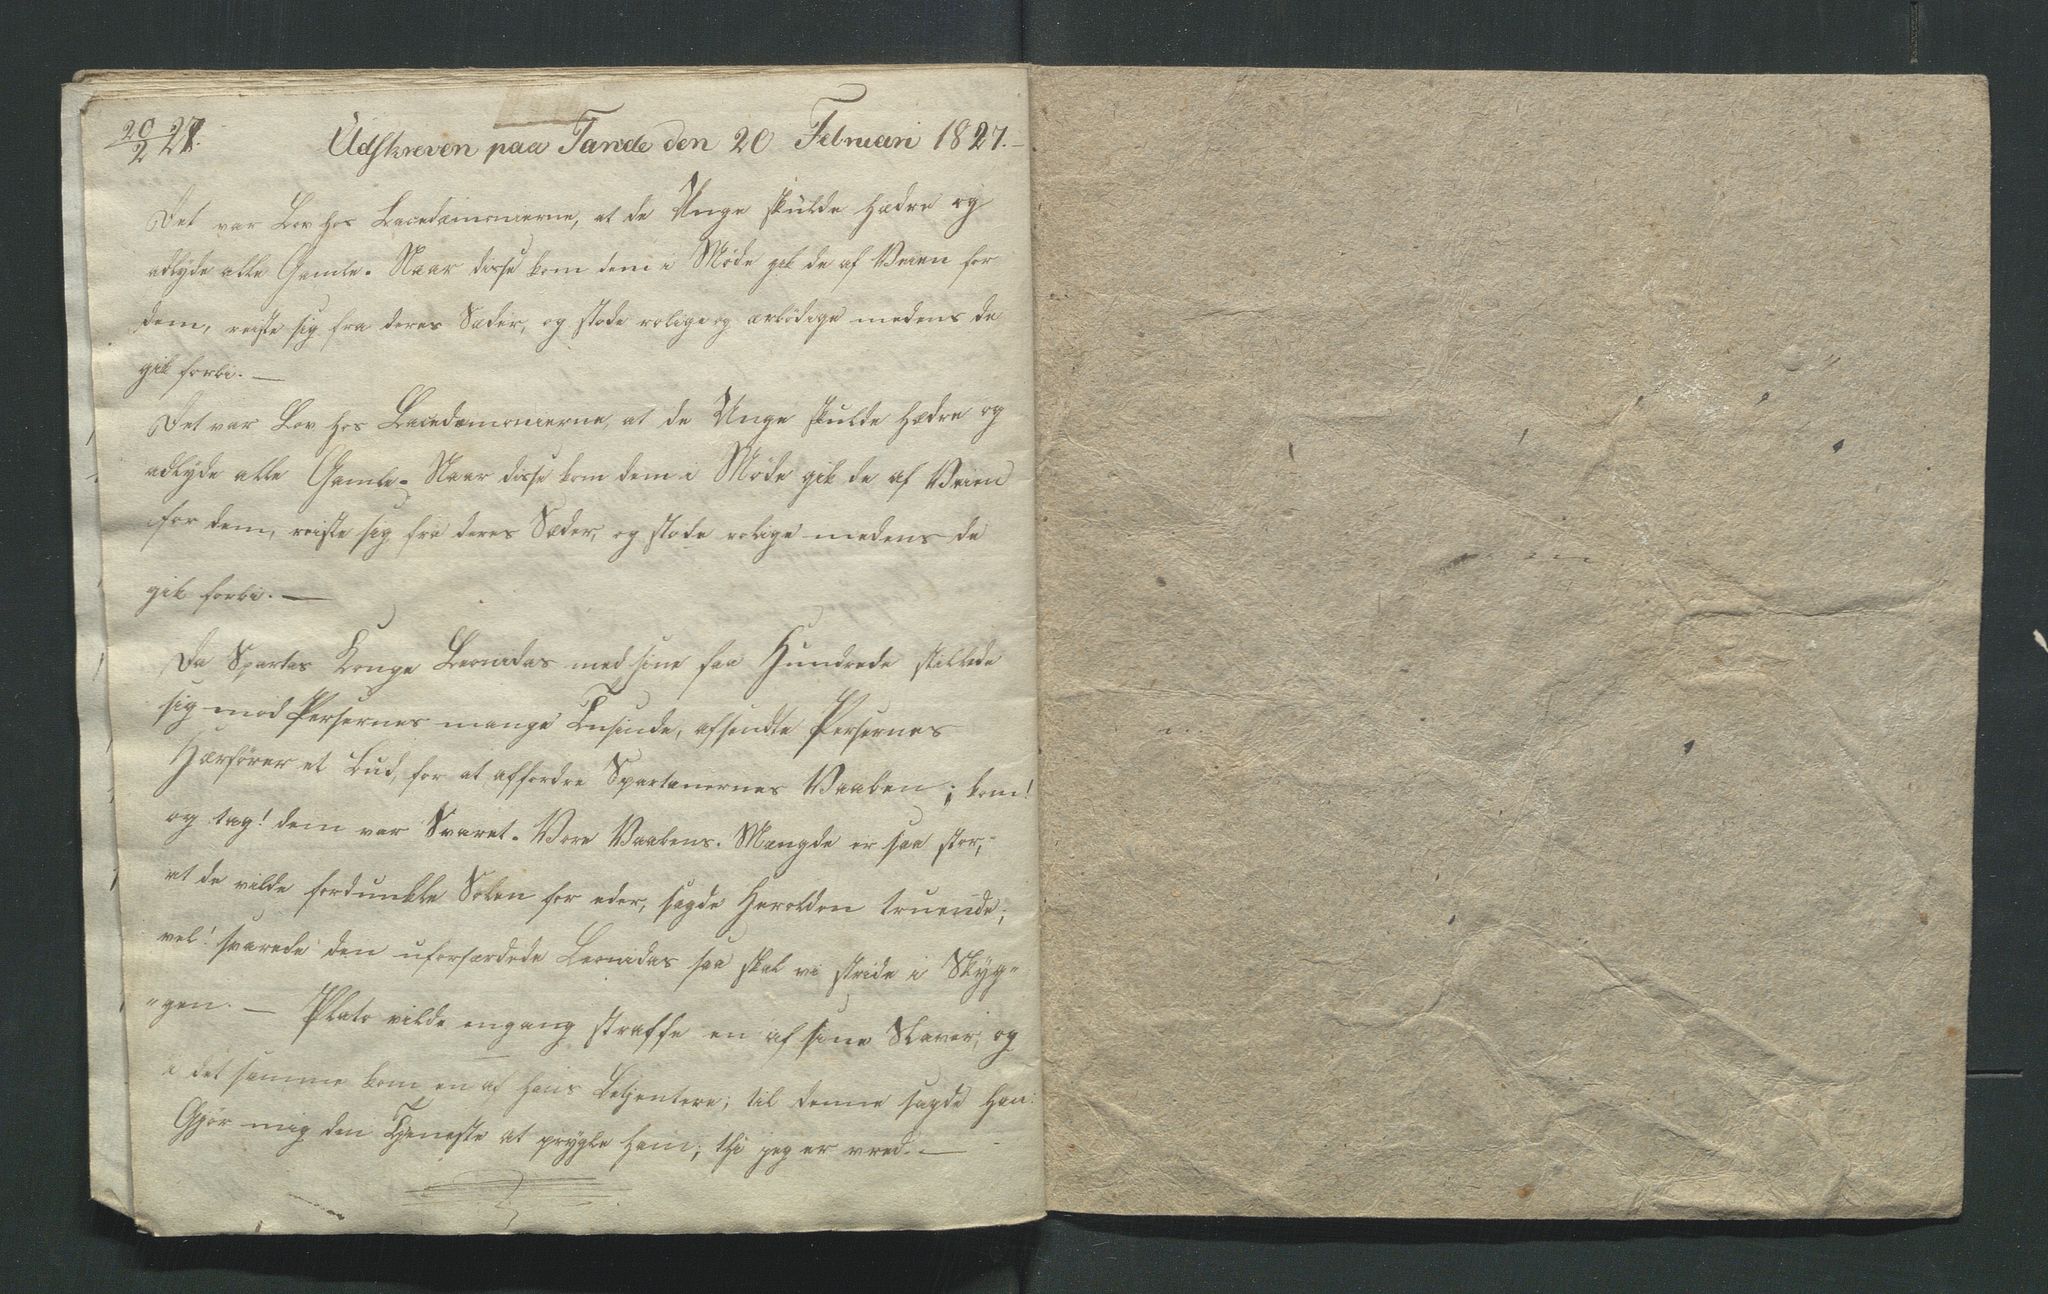 20/2 27. Udskreven paa Tande den 20 Februari 1827.
Det var Lov hos Lacedæmonierne, at de Unge skulde hædre og
adlyde alle Gamle. Naar disse kom dem i Møde gik de af Veien for
dem, reiste sig fra deres Sæder, og stode rolige og ærbödige medens de
gik forbi. —
Det var Lov hos Lacedæmonierne, at de Unge skulde hædre og
adlyde alle Gamle. Naar disse kom dem i Møde gik de af Veien
for dem, reiste sig fra deres Sæder, og stode rolige medens de
gik forbi. —
Da Spartas Konge Leonidas med sine faa Hundrede stillede
sig mod Persernes mange Tusinde, afsendte Persernes
Hærförer et Bud, for at affordre Spartanernes Vaaben; kom!
og tag! dem var Svaret. Vore Vaabens. Mængde er saa stor,
at de vilde fordunkle Solen for eder, sagde Herolden truende;
vel! svarede den uforfærdede Leonidas saa skal vi stride i Skyg-
gen. — Plato vilde engang straffe en af sine Slaver; og
i det samme kom en af hans Bekjentere; til denne sagde han:
Gjör mig den Tjeneste at prygle ham; thi jeg er vred. —